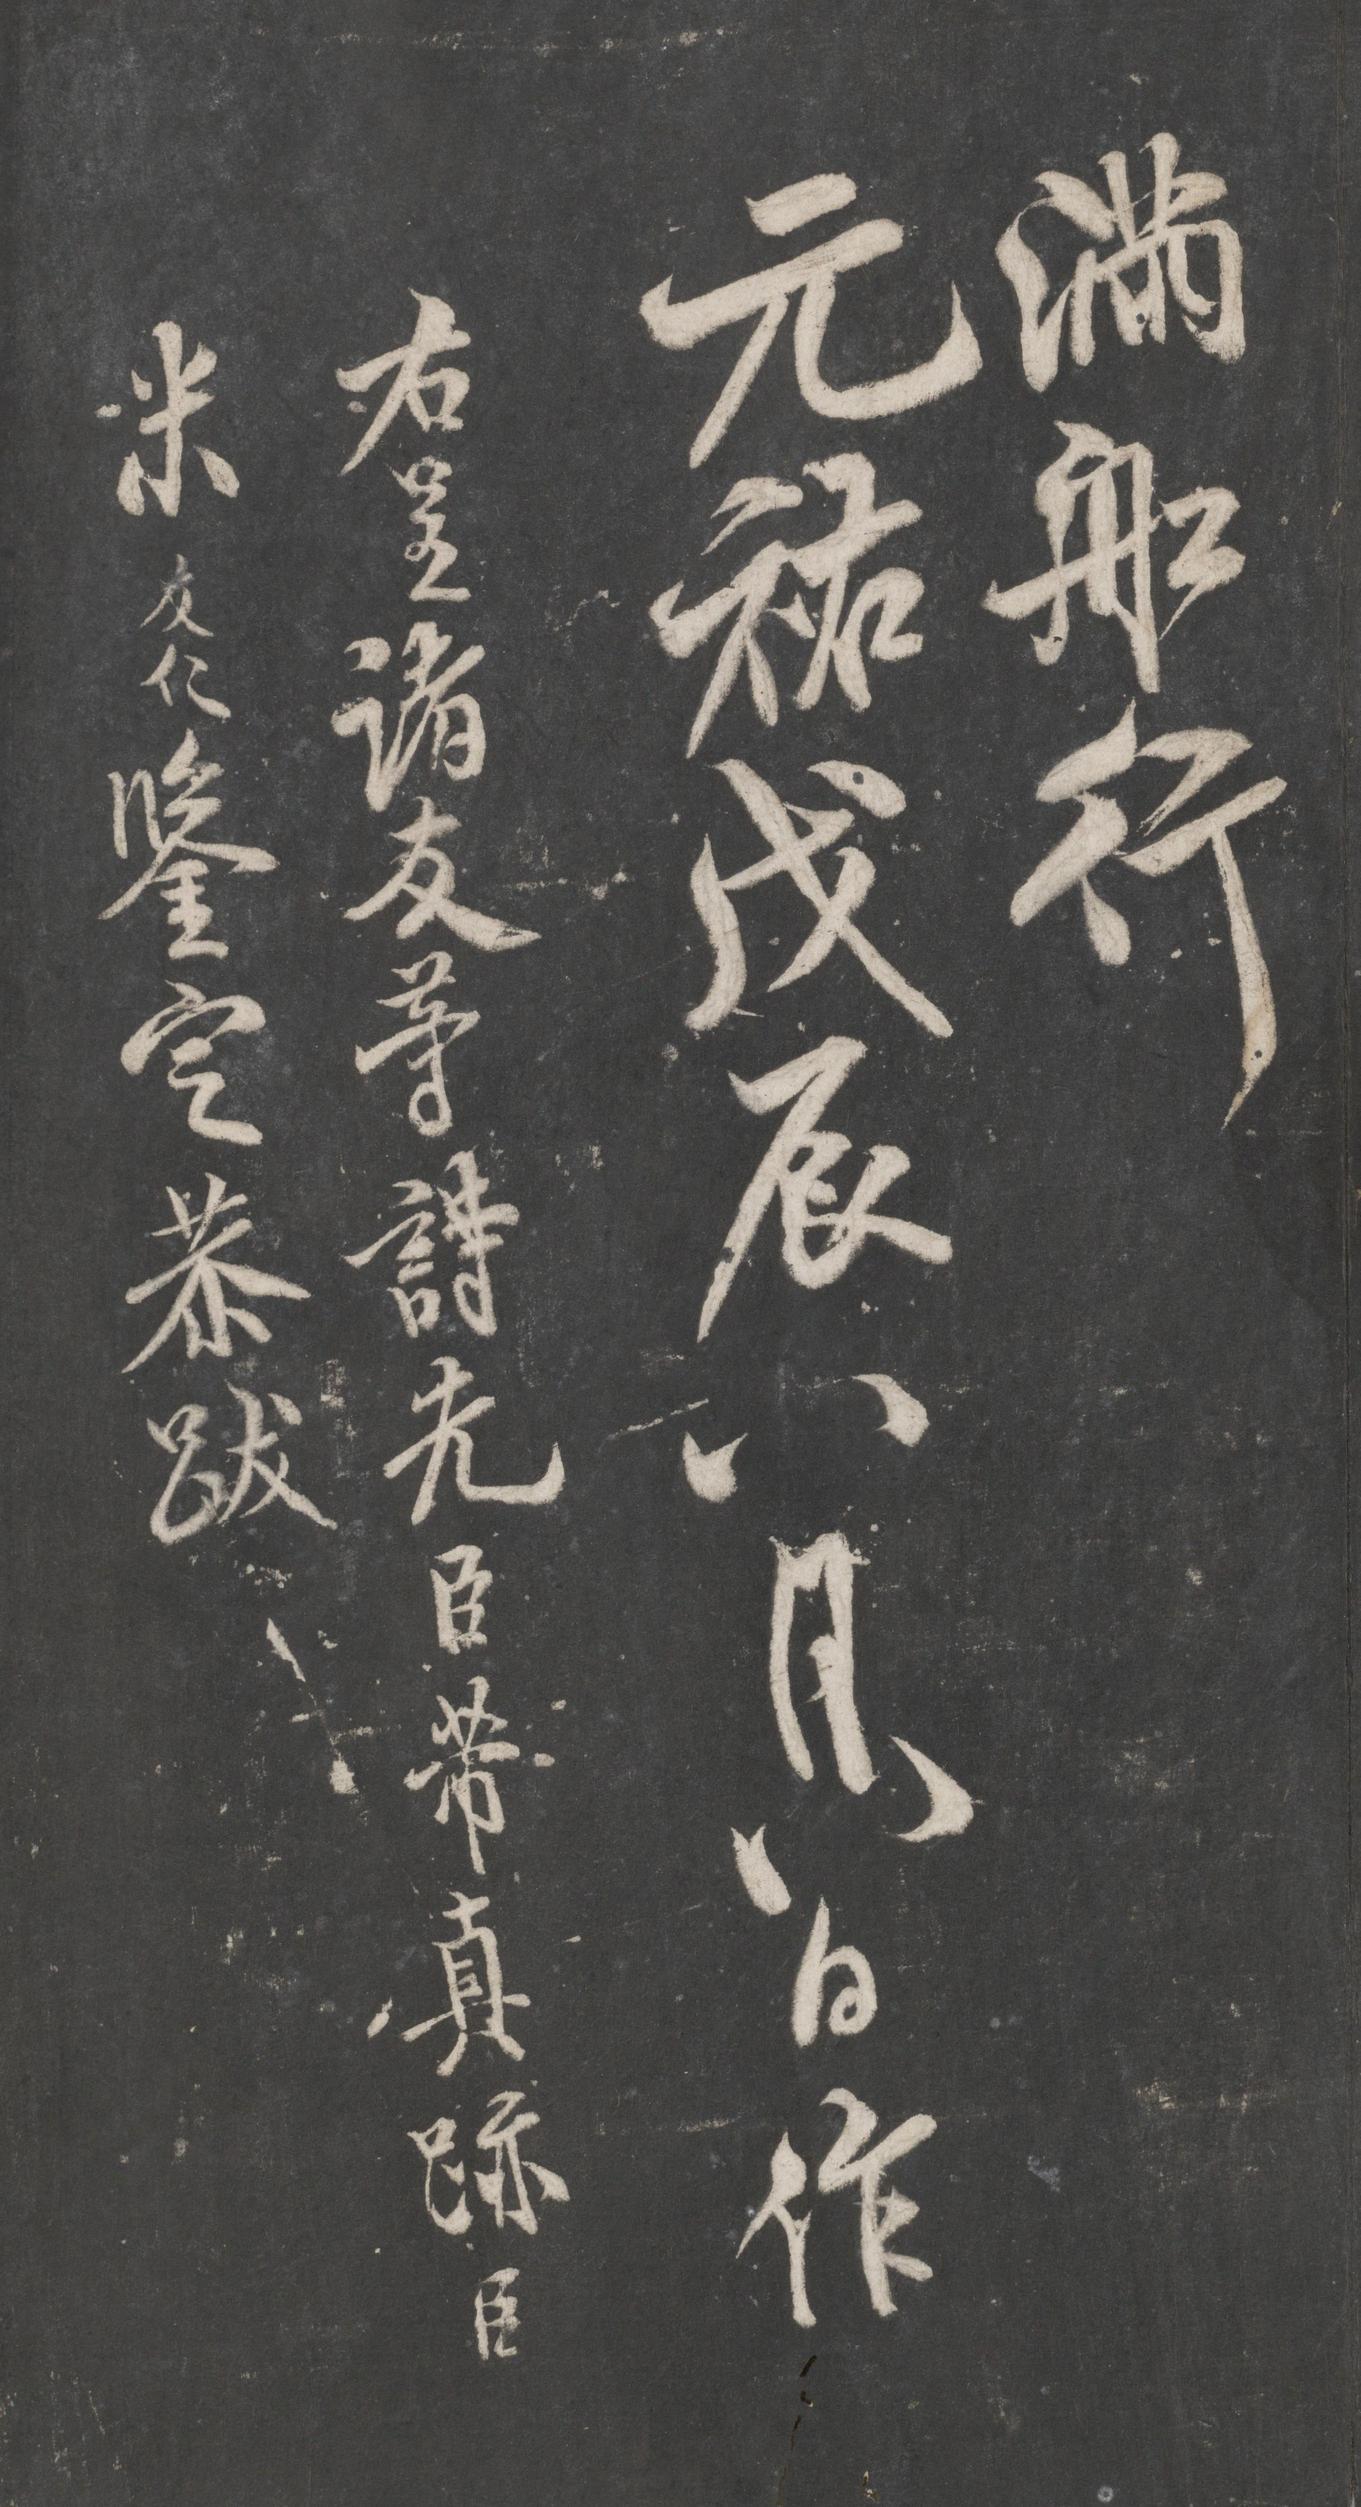 滿船行
元祐戊辰八月八日作
右呈諸友等詩先臣芾真跡臣
米友仁鑒定恭跋